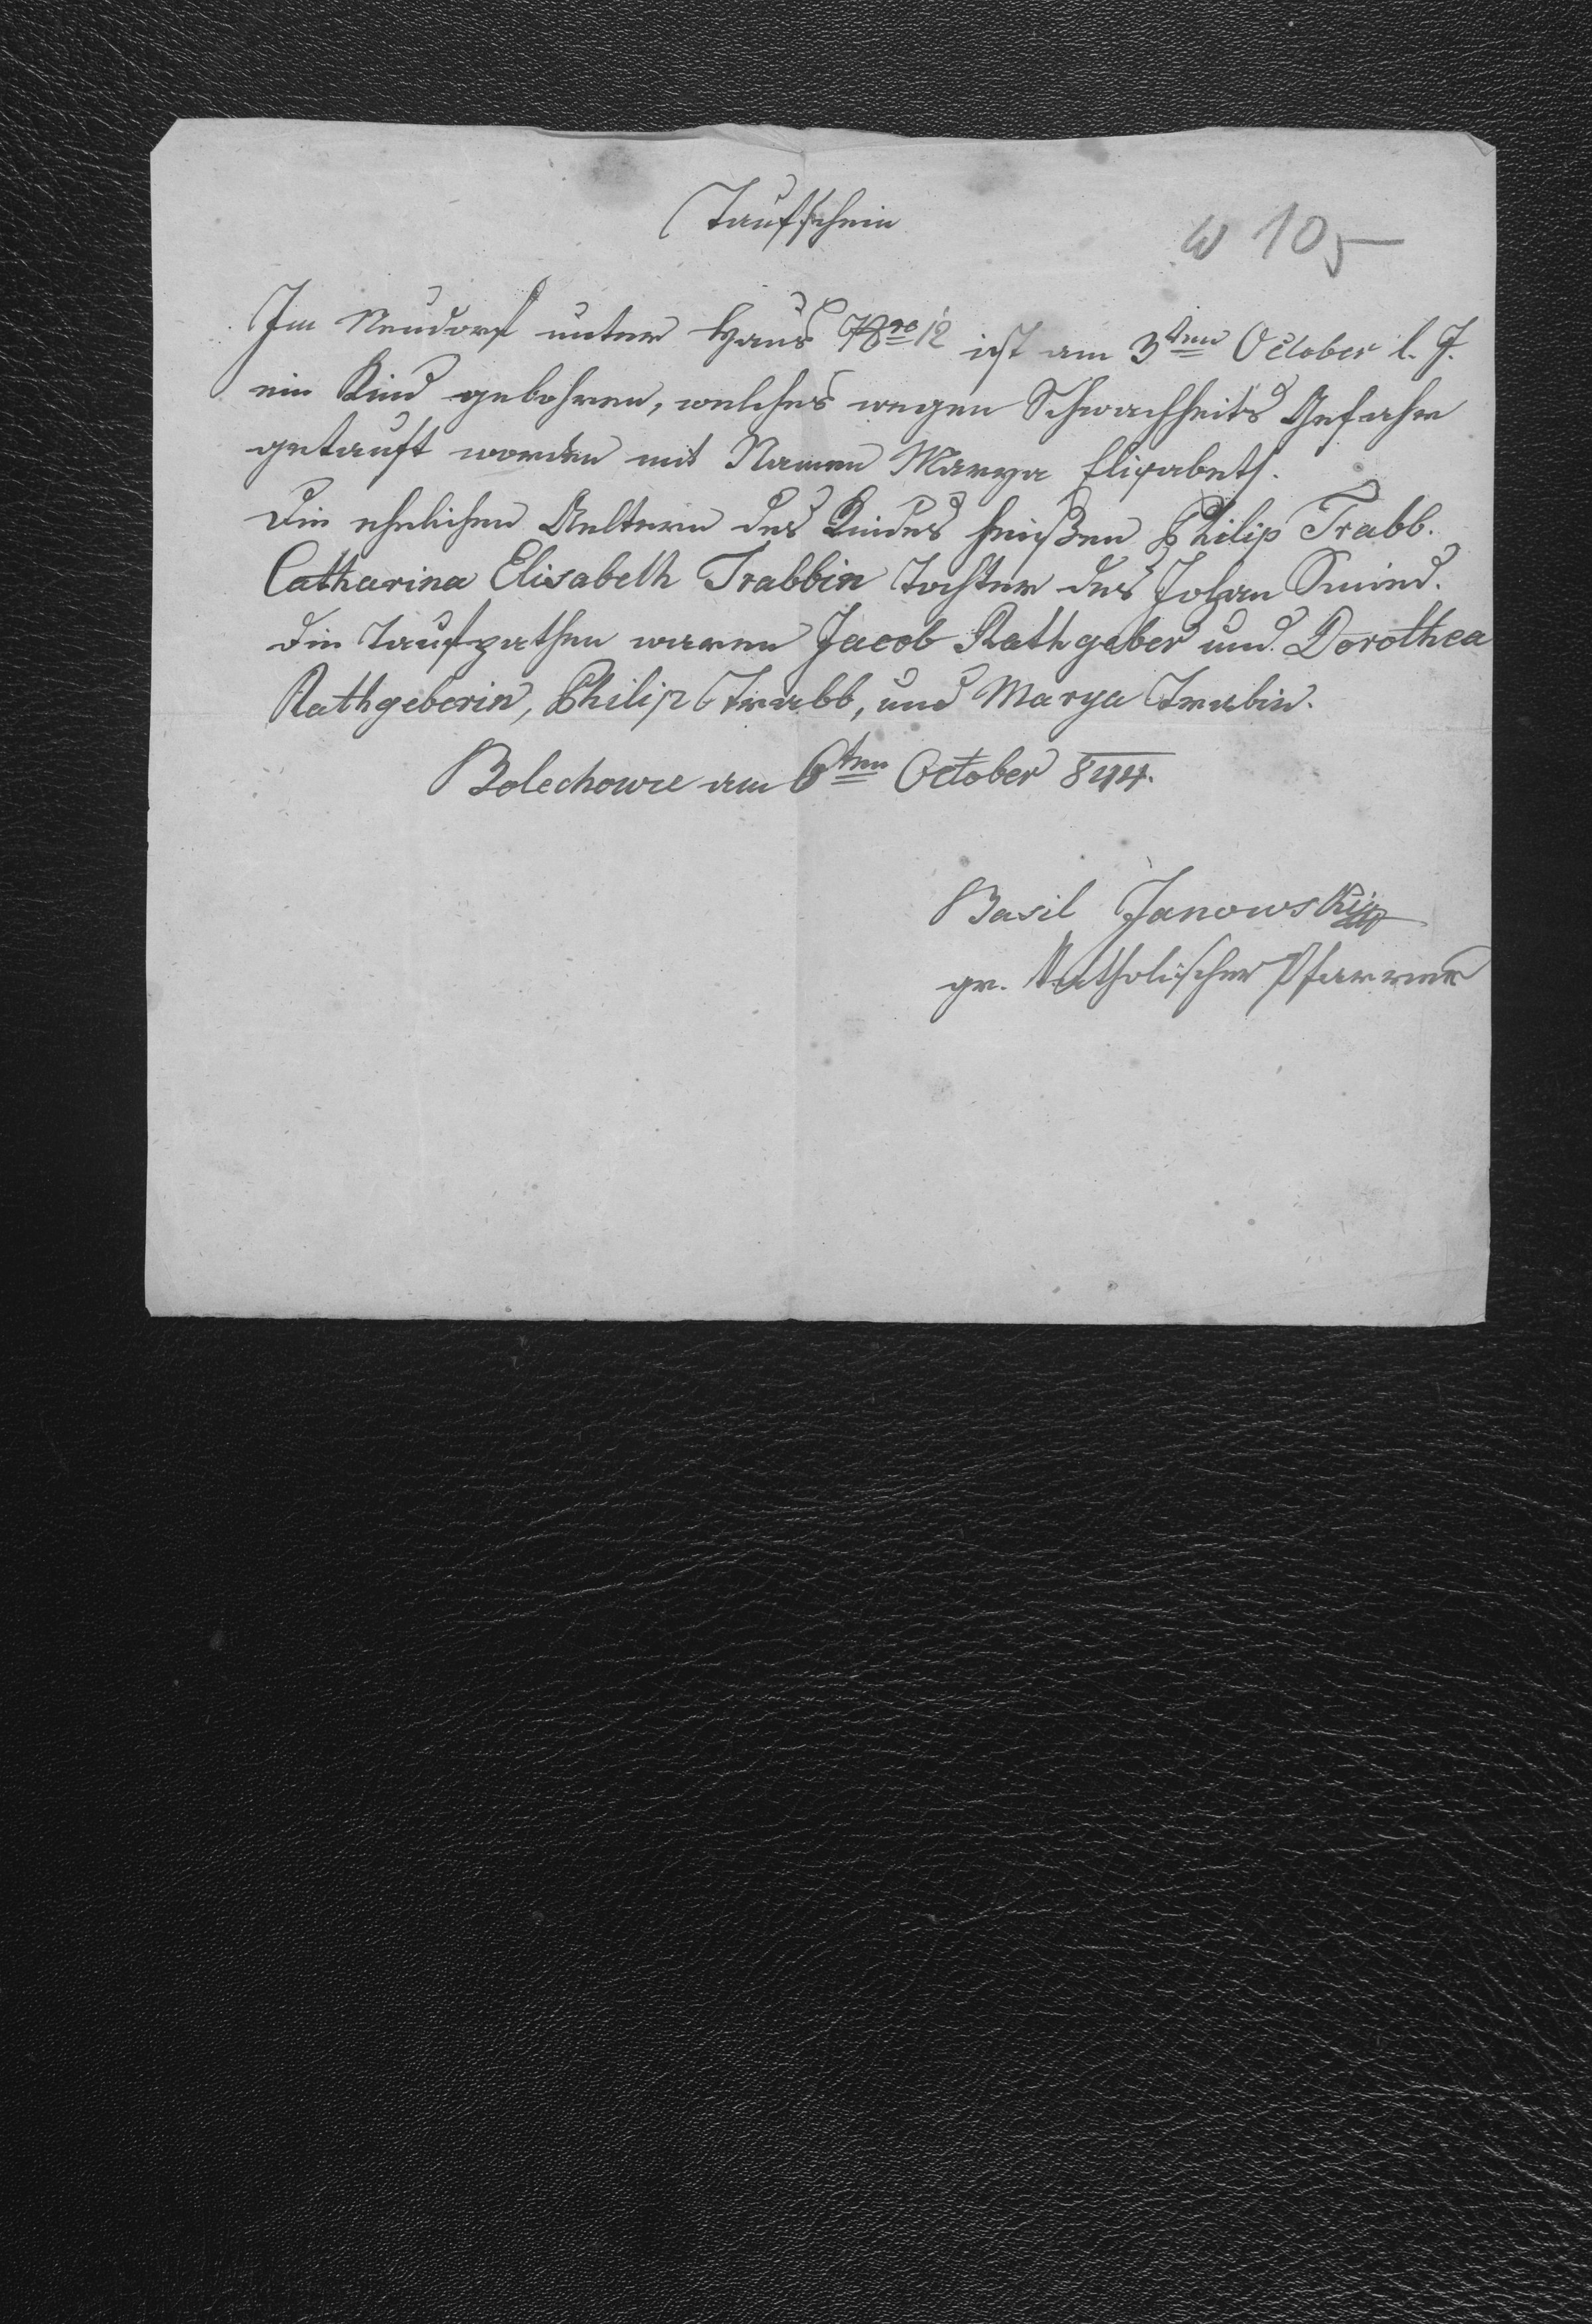 Taufschein
W 105
Im Neudorf unter Haus Nro 12 ist am 3ten October l. J.
ein Kind gebohren, welches wegen Schwachheits Gefahr
getauft worden mit Namen Marya Elisabeth.
Die ehelichen Aeltern des Kindes heißen Philip Trabb.
Catharina Elisabeth Trabbin Tochter des Johan Smied.
Die Taufpathen waren Jacob Rathgeber und Dorothea
Rathgeberin, Philip Trabb, und Marya Trabin.
Bolechowce am 6ten October 844.
Basil Janowski
gr. katholischer Pfarrer